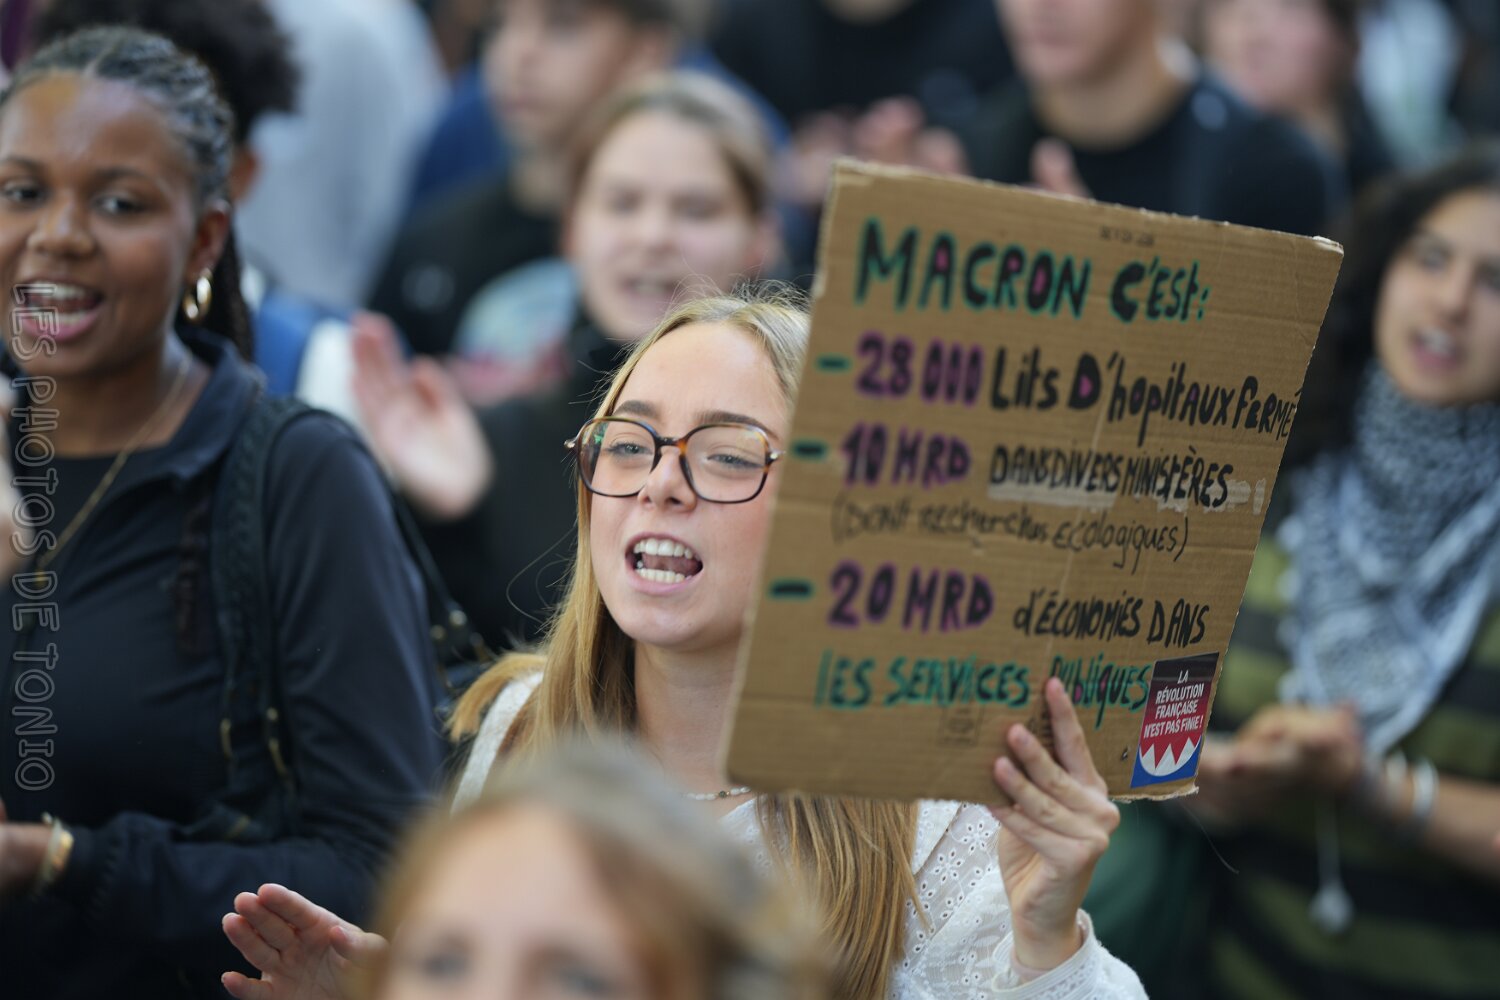 LES PHOTOS DE TONIO
MACRON C'Est:
- 28 000 Lits D'hopitaux FERMÉ
- 10 MRD DANS DIVERS MINISTÈRES
(Dont recherches écologiques)
- 20 MRD d'ÉCONOMIES DANS
lES SERVICES PUbliQUES
LA
RÉVOLUTION
FRANÇAISE
N'EST PAS FINIE !